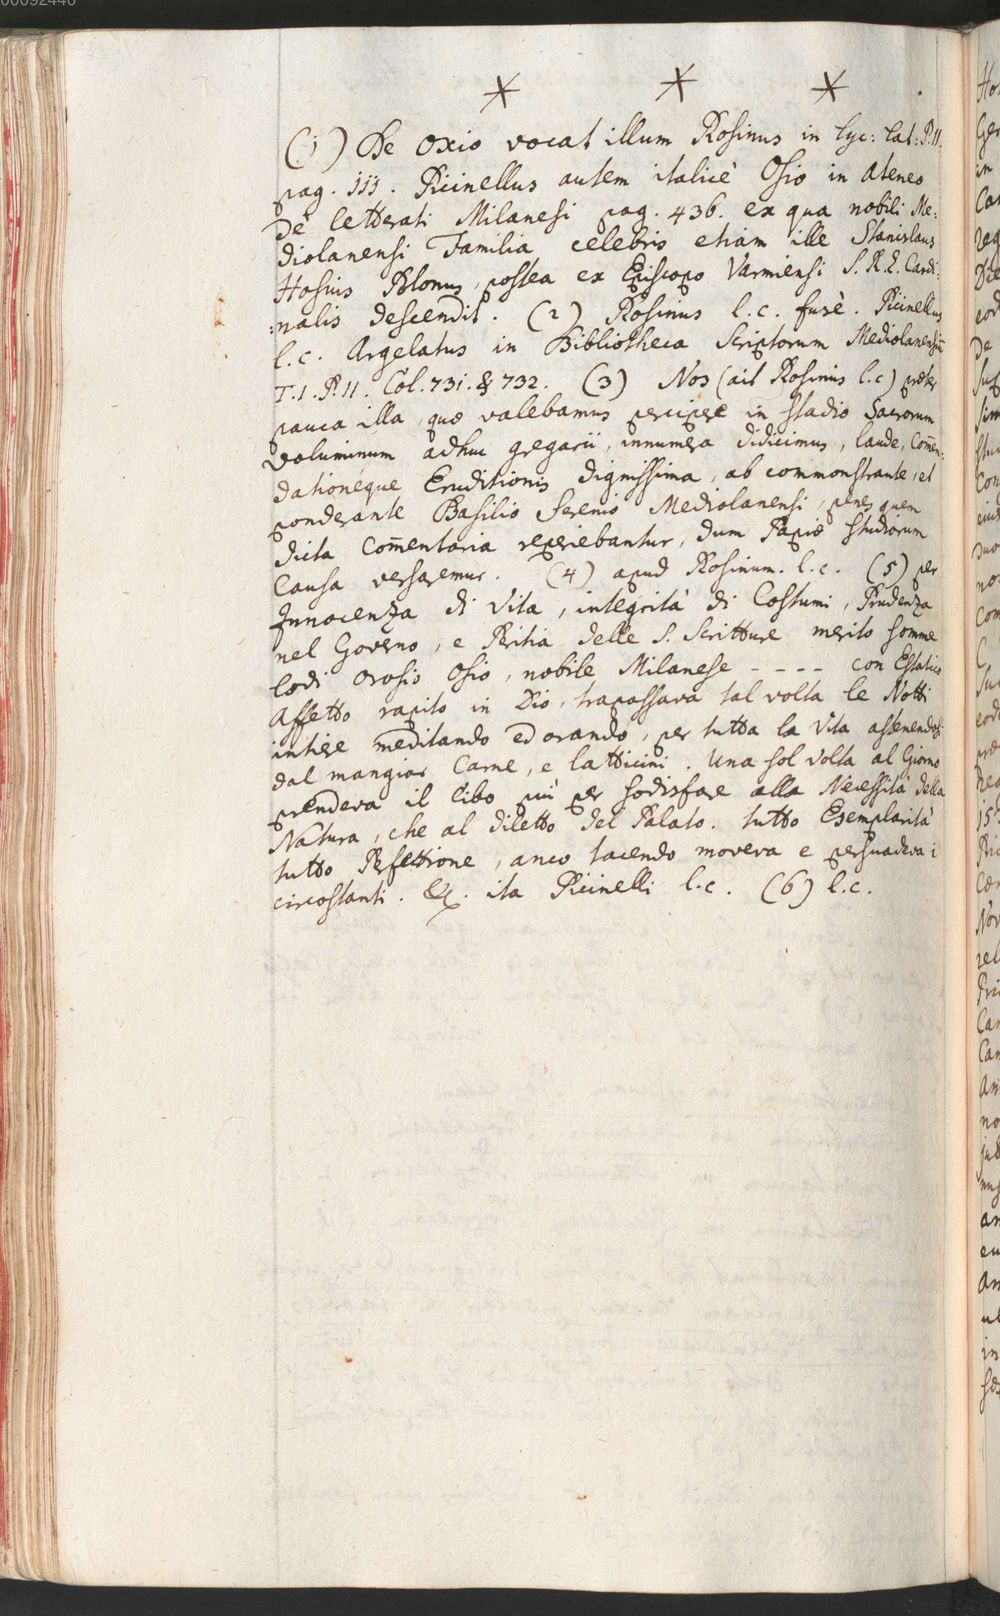 * * *
(1) De Oxio vocat illum Rosinus in Lyc: Lat: P.II.
pag. 111. Picinellus autem italicè Osio in Ateneo
de' letterati Milanesi pag. 436. ex qua nobili Me:
diolanensi Familia celebris etiam ille Stanislaus
Hosius Polonus, postea ex Episcopo Varmiensi S.R.E. Cardi:
:nalis descendit. (2) Rosinus l.c. fusè. Picinellus
l.c. Argelatus in Bibliotheca Scriptorum Mediolanensiũ
T.I. P.II. Col. 731. & 732. (3) Nos (ait Rosinus l.c) præter
pauca illa, quæ valebamus percipere in stadio Sacrorum
Voluminum adhuc gregarii, innumera didicimus, laude, Com̃en:
dationeque Eruditionis dignissima, ab commonstrante, et
ponderante Basilio Sereno Mediolanensi, penes quem
dicta Com̃entaria reperiebantur, dum Papiæ Studiorum
Causa versaremur. (4) apud Rosinum. l.c. (5) per
Innocenza di Vita, integrità di Costumi, Prudenza
nel Governo, e Peritia delle S. Scritture merito somme
lodi Orosio Osio, nobile Milanese - - - - con Estatico
Affetto rapito in Dio, trapassava tal volta le Notti
intiere meditando ed orando, per tutta la Vita astenendosi
dal mangiar Carne, e latticini. Una sol volta al Giorno
prendeva il Cibo più per sodisfare alla Necessità della
Natura, che al diletto del Palato. tutto Esemplarità
tutto Perfettione, anco tacendo moveva e persuadeva i
circostanti. &c. ita Picinelli l.c. (6) l.c.